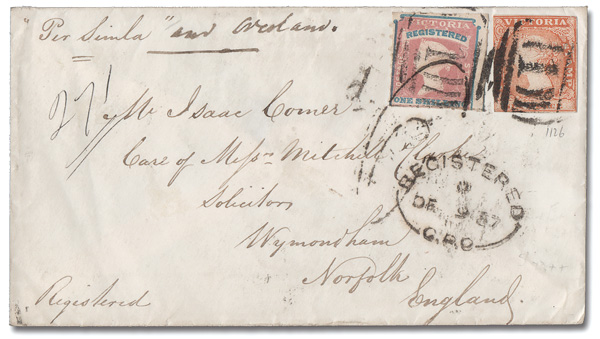 "Per Simla" and overland.
VICTORIA
REGISTERED
ONE SHILLING
VICTORIA
1126
Mr Isaac Comer
Care of Messrs Mitchell
Solicitors
REGISTERED
DE 9 57
G.P.O
Wymondham
Norfolk
England.
Registered